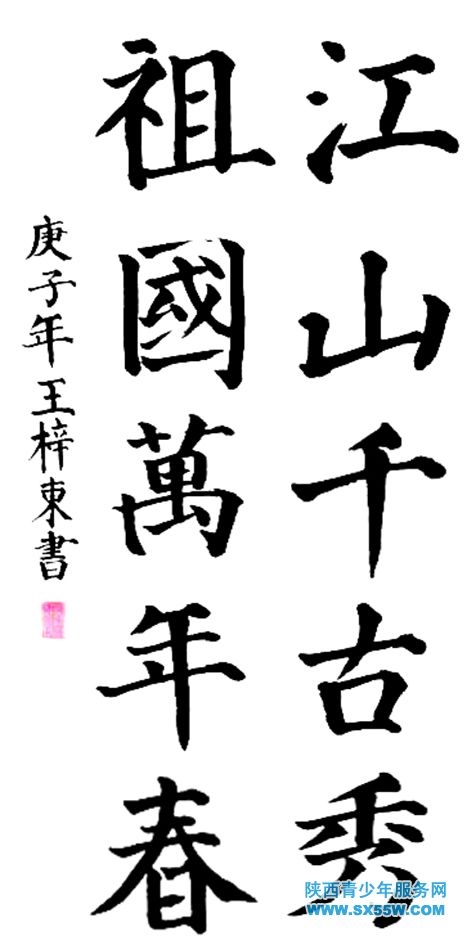 江山千古秀
祖國萬年春
庚子年王梓東書
陕西青少年服务网
www.sx55w.com